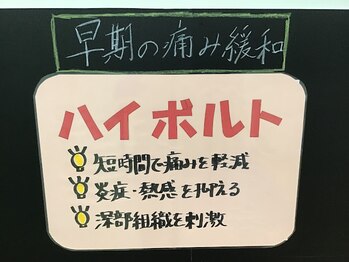 早期の痛み緩和
ハイボルト
短時間で痛みを軽減
炎症・熱感を抑える
深部組織を刺激